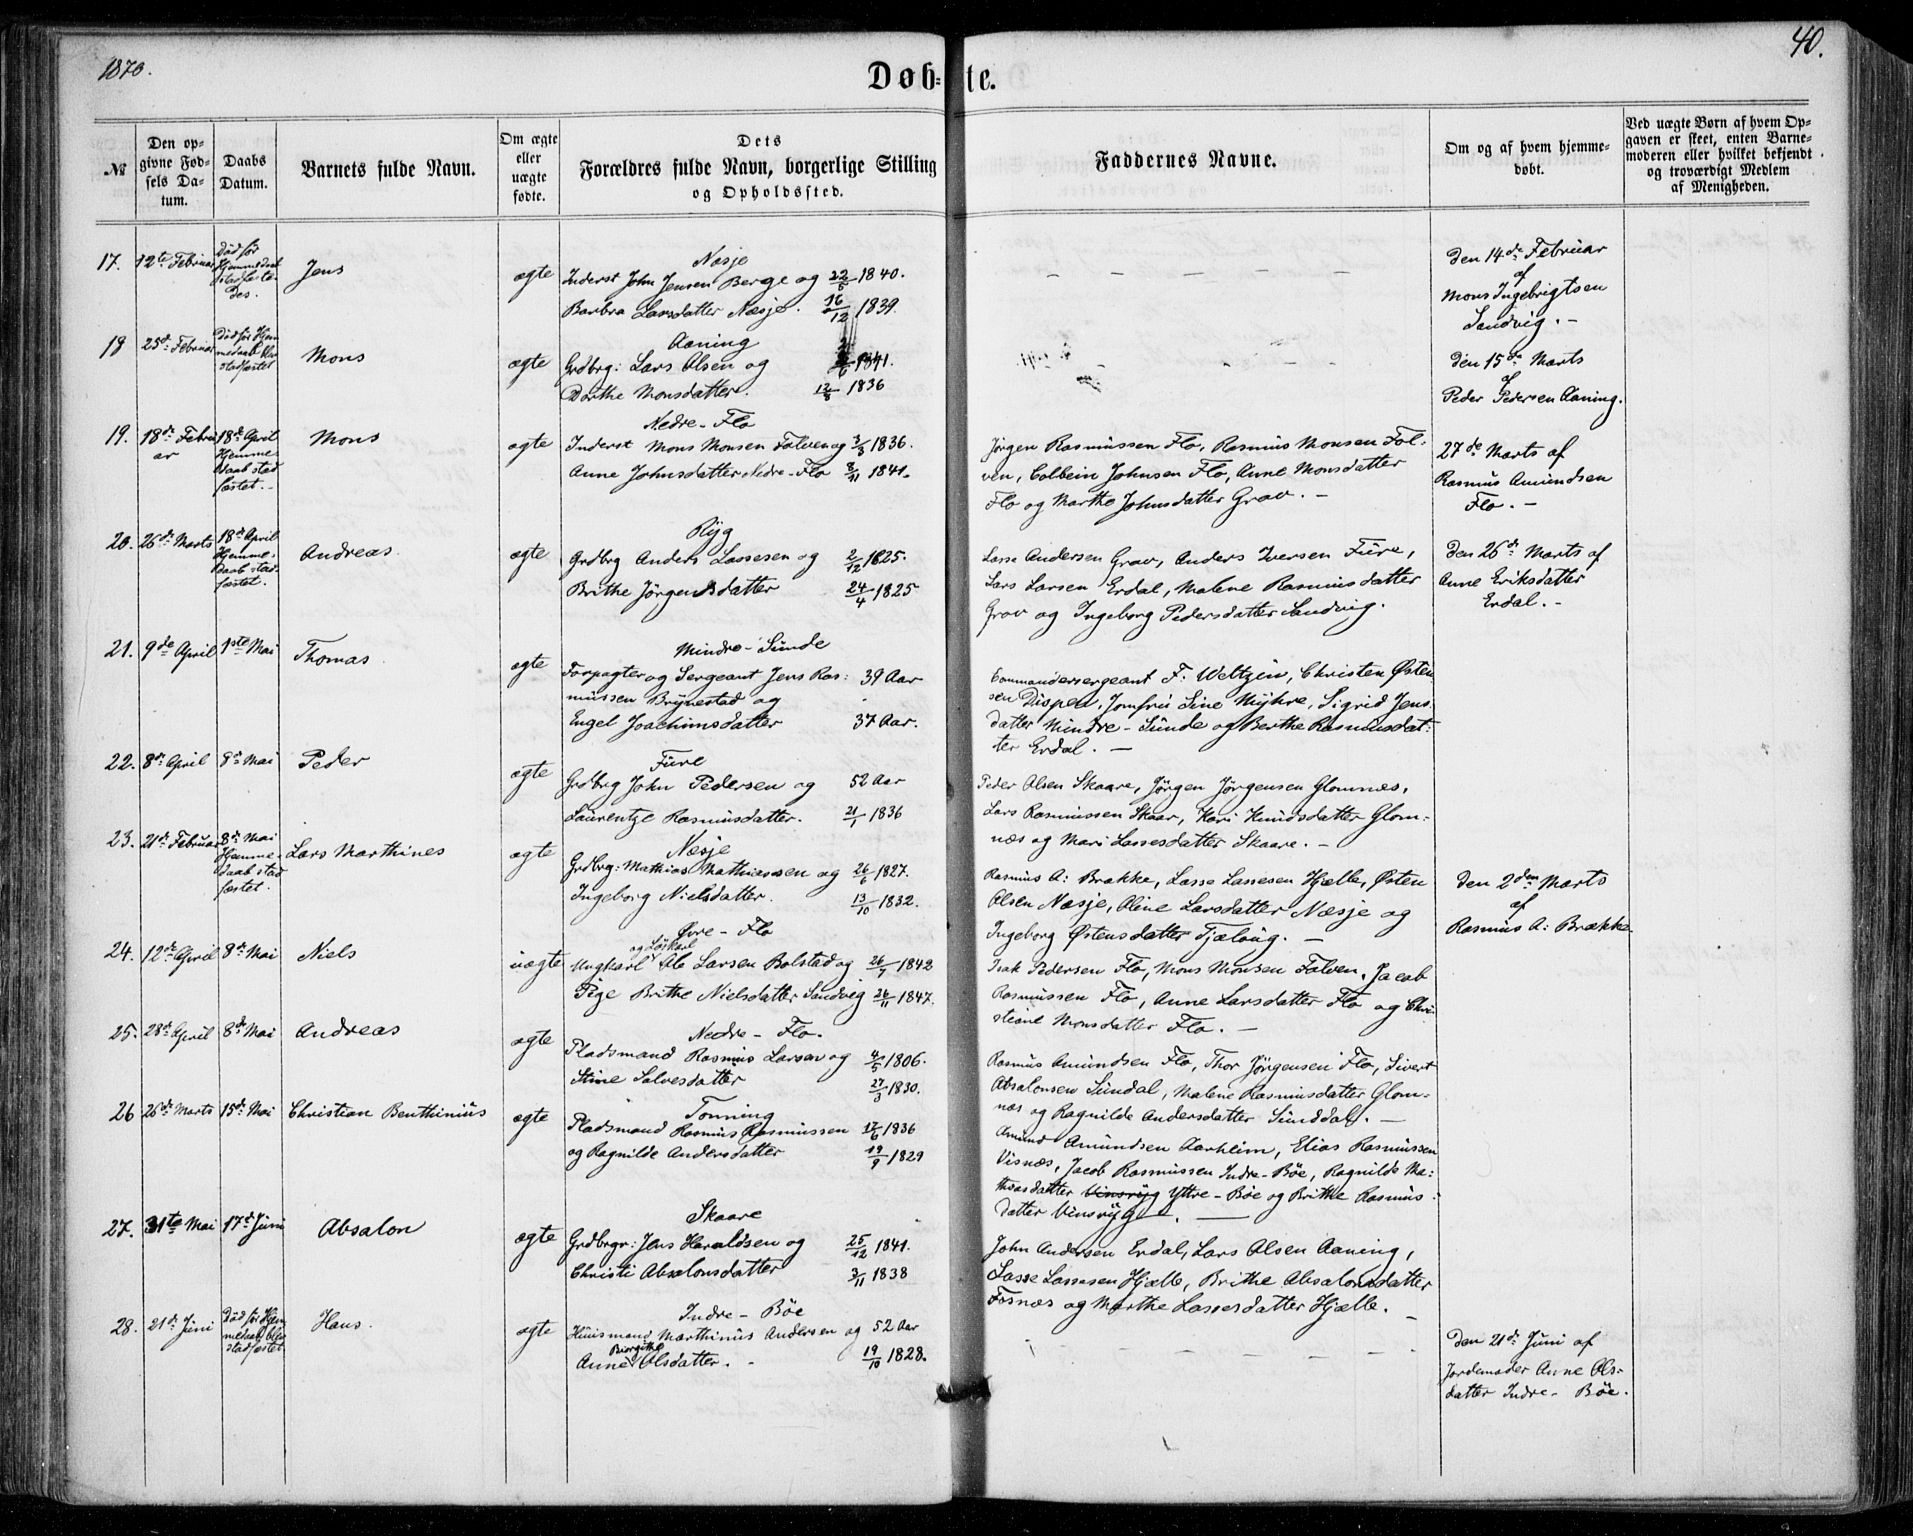 1870.
40.
Døb-te.
№
Den opgivne Fødsels Datum.
Daabs Datum.
Barnets fulde Navn.
Om ægte eller uægte fødte.
Dets Forældres fulde Navn, borgerlige Stilling og Opholdssted.
Faddernes Navne.
Om og af hvem hjemmedøbt.
Ved uægte Børn af hvem Opgaven er skeet, enten Barnemoderen eller hvilket bekjendt og troværdigt Medlem af Menigheden.
17. 12te Februar
Død før Hjemmedaab stadfæstedes.
Jens
ægte
Næsje
Inderst John Jensen Berge og 22/5 1840.
Barbra Larsdatter Næsje. 16/12 1839.
Den 14de Februar
af
Mons Ingebrigtsen
Sandvig. –
18 25de Februar
Død før Hjemmedaab blev stadfæstet
Mons
ægte
Aaning
Grdbrg: Lars Olsen og 1841.
Dorthe Monsdatter. 12/8 1836
Den 15de Marts
af
Peder Pedersen Aaning.
19. 18de Februar
18de April Hjemmedaab stadfæstet. –
Mons
ægte
Nedre – Flo
Inderst Mons Monsen Folven og 3/3 1836.
Anne Johnsdatter Nedre – Flo 8/11 1841.
Jørgen Rasmussen Flo, Rasmus Monsen Fol-
ven, Colbein Johnsen Flo, Anne Monsdatter
Flo og Marthe Johnsdatter Grov. –
27de Marts af
Rasmus Amundsen
Flo. –
20. 26de Marts
18de April Hjemmedaab stadfæstet.
Andreas
ægte
Ryg
Grdbrg Anders Lassesen og 2/12 1825.
Brithe Jørgensdatter 24/4 1825
Lasse Andersen Grov, Anders Iversen Fure,
Lars Larsen Erdal, Malene Rasmusdatter
Grov og Ingeborg Pedersdatter Sandvig.
Den 26de Marts af
Anne Eriksdatter
Erdal. –
21. 9de April
1ste Mai
Thomas
ægte
Mindre – Sunde
Forpagter og Sergeant Jens Ras: 39 Aar
mussen Brynestad og
Engel Joachimsdatter 37 Aar.
Commandersergeant F. Weltzin, Christen Østen
sen Dispen, Jomfru Sine Myhre, Sigrid Jens
datter Mindre – Sunde og Berthe Rasmusdat-
ter Erdal. –
22. 8de April
8de Mai
Peder
ægte
Fure
Grdbrg John Pedersen og 52 Aar
Laurentze Rasmusdatter. 21/1 1836
Peder Olsen Skaare, Jørgen Jørgensen Glomnes,
Lars Rasmussen Skaar, Kari Knudsdatter Glom-
næs og Mari Lassesdatter Skaare. –
23. 21de Februar
8de Mai Hjemmedaab stadfæstet.
Lars Marthines
ægte
Næsje
Grdbrg: Mathias Mathiassen og 26/6 1827.
Ingeborg Nielsdatter. 13/10 1832.
Rasmus A: Brække, Lasse Lassesen Hjelle, Østen
Olsen Næsje, Oline Larsdatter Næsje og
Ingeborg Østensdatter Tjælaug. –
Den 2den Marts
af
Rasmus A: Brække
24. 12de April
8de Mai
Niels
uægte
Øvre – Flo
og Løskarl
Ungkarl Ole Larsen Bolstad og 26/7 1842
Pige Brithe Nielsdatter Sandvig 26/11 1847.
Isak Pedersen Flo, Mons Monsen Folven, Jacob
Rasmussen Flo, Anne Larsdatter Flo og Chri-
stiane Monsdatter Flo. –
25. 28de April
8de Mai
Andreas
ægte
Nedre – Flo.
Pladsmand Rasmus Larsen og 4/5 1806.
Stine Salvesdatter 27/3 1830.
Rasmus Amundsen Flo, Thor Jørgensen Flo, Sivert
Absalonsen Sundal, Malene Rasmusdatter Glom-
næs og Ragnilde Andersdatter Sunddal. –
26 26de Marts
15de Mai
Christian Benthinius
ægte
Tonning
Pladsmand Rasmus Rasmussen 17/6 1836
og Ragnilde Andersdatter 19/9 1829
Amund Amundsen Aarheim, Elias Rasmussen
Visnæs, Jacob Rasmussen Indre – Bøe, Ragnilde Ma:
thiasdatter Vinsryg Yttre – Bøe og Brithe Rasmus:
datter Vinsryg. –
27. 31te Mai
17de Juni
Absalon
ægte
Skaare
Grdbrgr: Jens Haraldsen og 25/12 1841.
Christi Absalonsdatter 3/11 1838
John Andersen Erdal, Lars Olsen Aaning,
Lasse Lassesen Hjelle, Brithe Absalonsdatter
Fosnæs og Marthe Lassesdatter Hjælle.
28. 21de Juni
Død før Hjemmedaab blev stadfæstet
Hans.
ægte
Indre – Bøe
Huusmand Marthinus Andersen og 52 Aar
Birgithe
Anne Olsdatter. 19/10 1828.
Den 21de Juni af
Jordemoder Anne Ols-
datter Indre – Bøe.